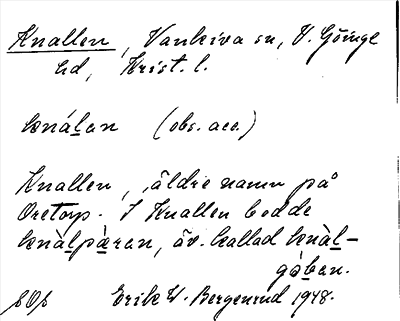 Knallen, Vankiva sn, V. Göinge
hd, Krist. l.
knálan (obs. acc.)
Knallen, äldre namn på
Oretorp. I Knallen bodde
knàlpàran, äv. kallad knàl-
gòban.
Erik W. Bergenrud 1948.